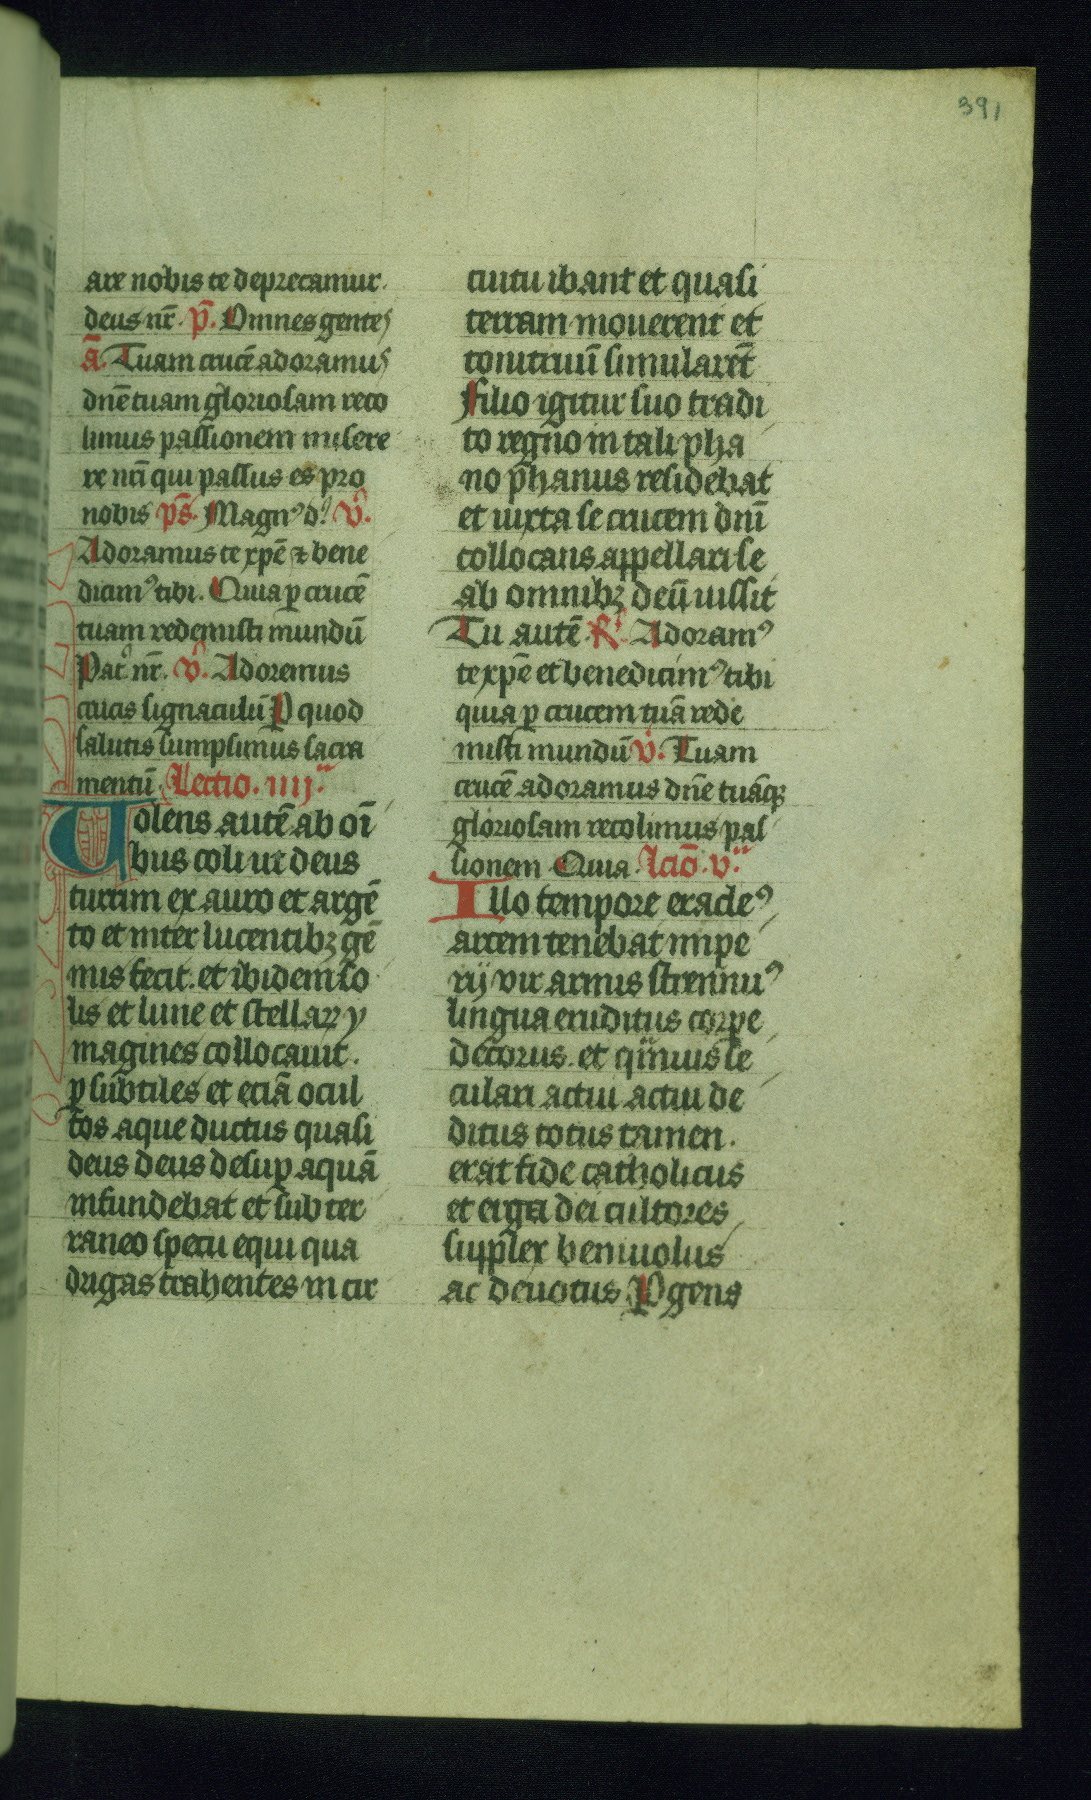 391
are nobis te deprecamur.
deus nr̄. p̄. Omnes gentes
ā. Tuam crucē adoramus
dn̄e tuam gloriosam reco
limus passionem misere
re nr̄i qui passus es pro
nobis p̄s. Magn⁹ d. v̊.
Adoramus te xp̄e ⁊ bene
dicim⁹ tibi. Quia ꝑ crucē
tuam redemisti mundū
Pat̊ nr̄. v̊. Adoremus
crucis signaculū Ꝑ quod
salutis sumpsimus sacra
mentū. Lectio. iiij.ᵃ
Uolens autē ab oī
bus coli ut deus
turrim ex auro et argē
to et inter lucentibꝫ gē
mis fecit. et ibidem so
lis et lune et stellaꝝ y
magines collocauit.
ꝑ subtiles et eciā ocul
tos aque ductus quasi
deus deus desuꝑ aquā
infundebat et subter
raneo specu equi qua
drigas trahentes in cir
cuitu ibant et quasi
terram mouerent et
tonitruū simularēt
Filio igitur suo tradi
to regno in tali pha
no p̄hanus residebat
et iuxta se crucem dn̄i
collocans appellari se
ab omnibꝫ deū iussit
Tu autē. R̊. Adoram⁹
te xp̄e et benedicim⁹ tibi
quia ꝑ crucem tuā rede
misti mundū v̊. Tuam
crucē adoramus dn̄e tuāqꝫ
gloriosam recolimus pas
sionem Quia. Lcīo. v.ᵃ
Illo tempore eracle⁹
arcem tenebat impe
rij vir armis strennu⁹
lingua eruditus corpe
decorus. et qͣmuis se
culari actui actui de
ditus totus tamen.
erat fide catholicus
et erga dei cultores
supplex beniuolus
ac deuotus Ꝑgens